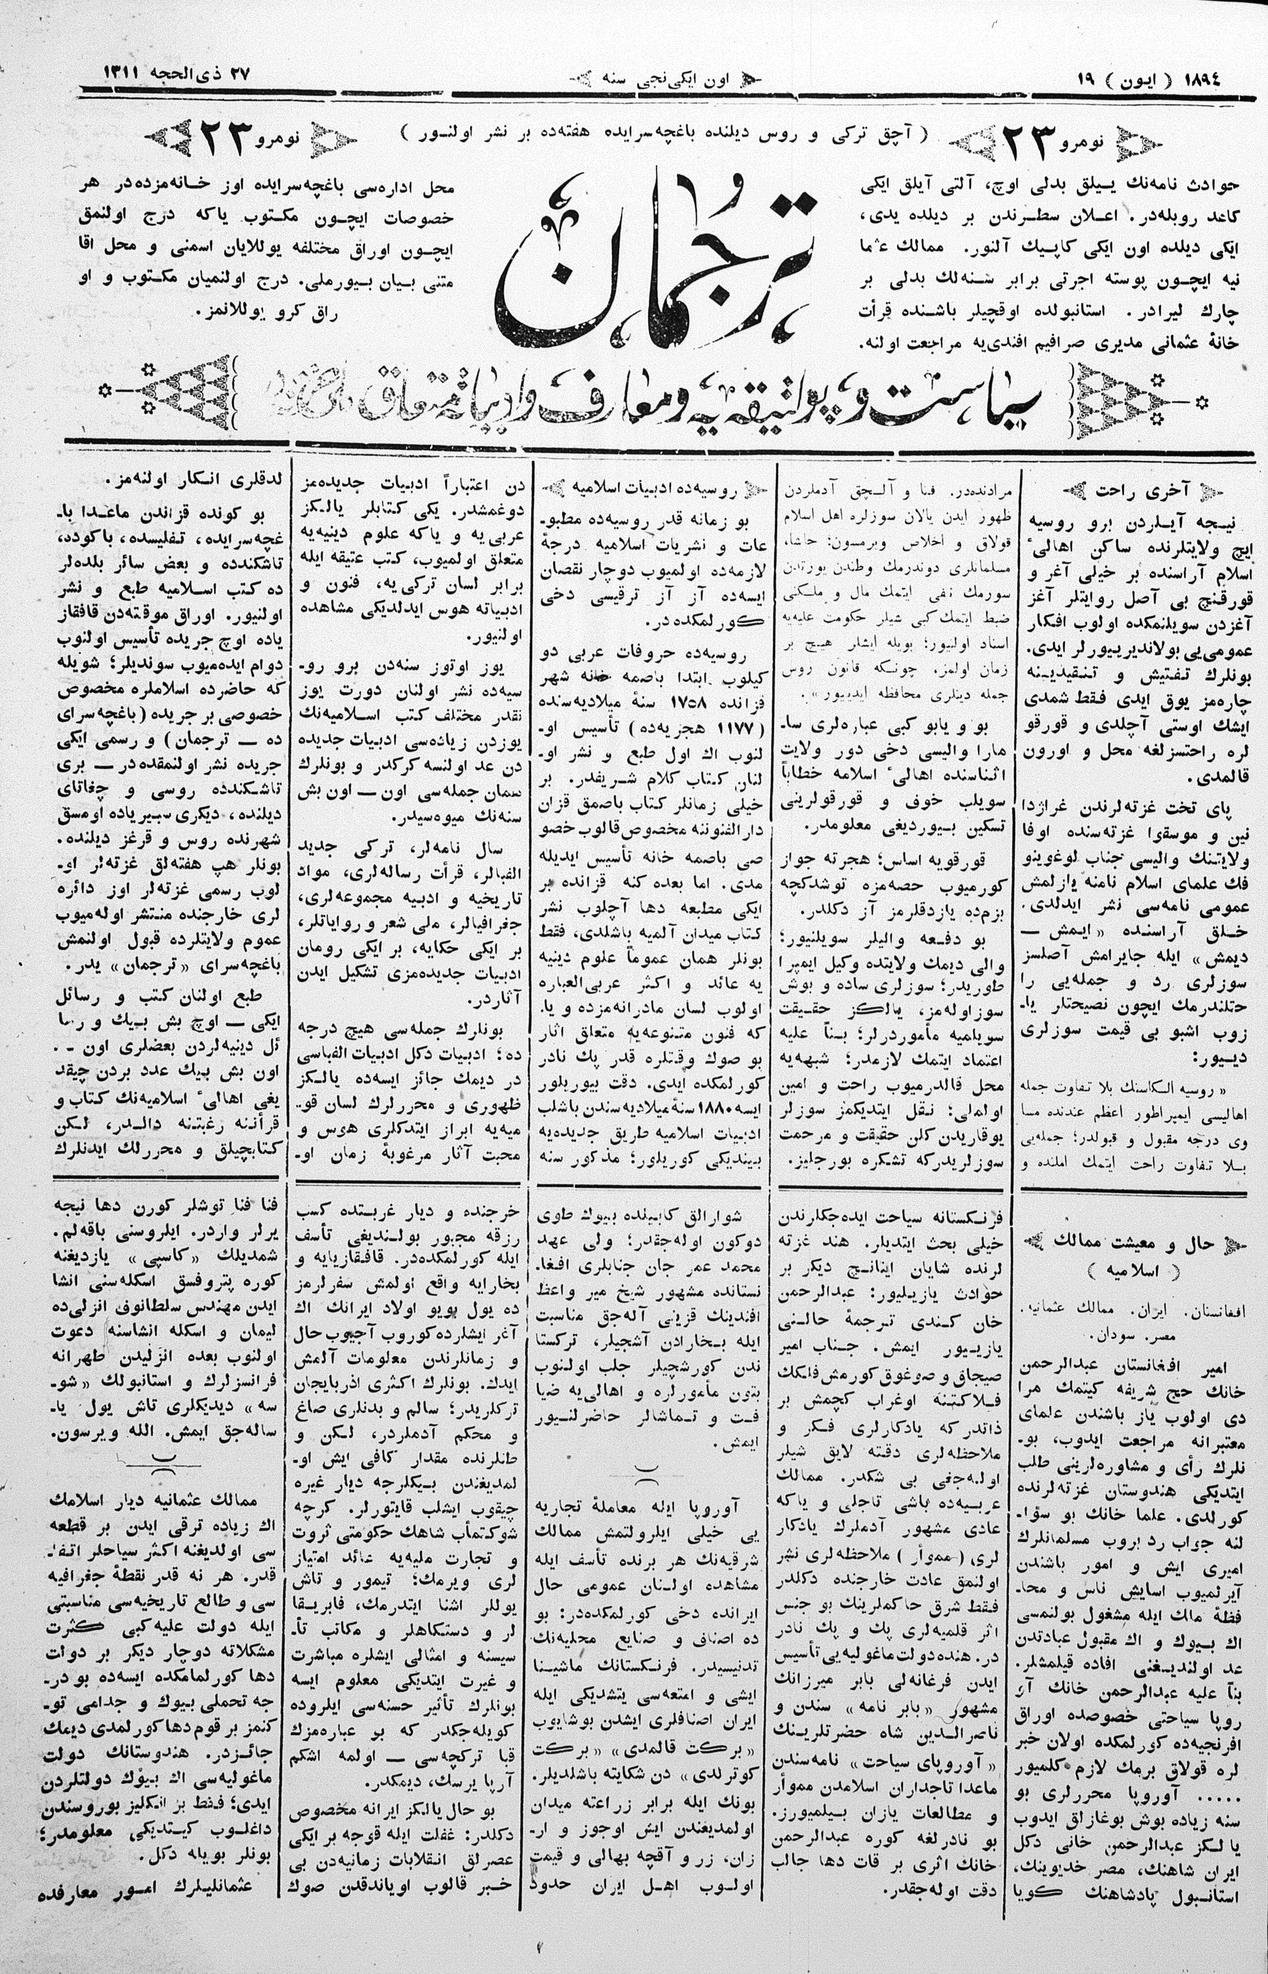 ١٨٩٤ ( ايون ) ١٩
اون ايكى نجى سنه
٢٧ ذى الحجه ١٣١١
نومرو ٢٣
( آچق تركى و روس ديلنده باغچه سرايده هفته ده بر نشر اولنور )
نومرو ٢٣
حوادث نامه نك ييللق بدلى اوچ، آلتى آيلق ايكى
كاغد روبله در. اعلان سطرندن بر ديلده يدى،
ايكى ديلده اون ايكى كاپيك آلنور. ممالك عثما
نيه ايچون پوسته اجرتى برابر سنه لك بدلى بر
چارك ليرادر. استانبولده اوقچيلر باشنده قرأت
خانۀ عثمانى مديرى صرافيم افندى يه مراجعت اولنه.
ترجمان
محل اداره سى باغچه سرايده اوز خانه مزده در هر
خصوصات ايچون مكتوب ياكه درج اولنمق
ايچون اوراق مختلفه يوللايان اسمنى و محل اقا
متنى بيان بيورملى. درج اولنميان مكتوب و او
راق كرو يوللانمز.
سياست و پولتيقه يه و معارف و ادبياته متعلق
آخرى راحت
نيجه آيلردن برو روسيه
ايچ ولايتلرنده ساكن اهالىٔ
اسلام آراسنده بر خيلى آغر و
قورقنچ بى آصل روايتلر آغز
آغزدن سويلنمكده اولوب افكار
عمومى يى بولانديريورلر ايدى.
بونلرك تفتيش و تنقيدينه
چاره مز يوق ايدى فقط شمدى
ايشك اوستى آچلدى و قورقو
لره راحتسزلغه محل و اورون
قالمدى.
پاى تخت غزته لرندن غراژدا
نين و موسقوا غزته سنده اوفا
ولايتنك واليسى جناب لوغوينو
فك علماى اسلام نامنه يازلمش
عمومى نامه سى نشر ايدلدى.
خلق آراسنده «ايمش —
ديمش» ايله جايرامش آصلسز
سوزلرى رد و جمله يى را
حتلندرمك ايچون نصيحتار يا-
زوب اشبو بى قيمت سوزلرى
ديور:
« روسيه الكاسنك بلا تفاوت جمله
اهاليسى ايمپراطور اعظم عندنده مسا
وى درجه مقبول و قبولدر؛ جمله يى
بلا تفاوت راحت ايتمك املنده و
مرادنده در. فنا و آلچق آدملردن
ظهور ايدن يالان سوزلره اهل اسلام
قولاق و اخلاص ويرمسون؛ حاشا،
مسلمانلرى دوندرمك وطندن يورتدن
سورمك نفى ايتمك مال و ملكنى
ضبط ايتمك كبى شيلر حكومت عليه يه
اسناد اولنيور؛ بويله ايشلر هيچ بر
زمان اولمز. چونكه قانون روس
جمله دينلرى محافظه ايدييور».
بو و يابو كبى عباره لرى سا-
مارا واليسى دخى دور ولايت
اثناسنده اهالىٔ اسلامه خطاباً
سويلب خوف و قورقولرينى
تسكين بيورديغى معلومدر.
قورقويه اساس؛ هجرته جواز
كورميوب حصه مزه توشدكچه
بزم ده يازدقلرمز آز دكلدر.
بو دفعه واليلر سويلنيور؛
والى ديمك ولايتده وكيل ايمپرا
طوريدر؛ سوزلرى ساده و بوش
سوز اوله مز، يالكز حقيقت
سويلميه مأموردرلر؛ بنآ عليه
اعتماد ايتمك لازمدر؛ شبهه يه
محل قالدرميوب راحت و امين
اولملى؛ نقل ايتديكمز سوزلر
يوقاريدن كلن حقيقت و مرحمت
سوزلريدركه تشكره بورجليز.
روسيه ده ادبيات اسلاميه
بو زمانه قدر روسيه ده مطبو-
عات و نشريات اسلاميه درجۀ
لازمه ده اولميوب دوچار نقصان
ايسه ده آز آز ترقيسى دخى
كورلمكده در.
روسيه ده حروفات عربى دو
كيلوب ابتدا باصمه خانه شهر
قزانده ١٧٥٨ سنۀ ميلاديه سنده
(١١٧٧ هجريه ده) تأسيس او-
لنوب اك اول طبع و نشر او-
لنان كتاب كلام شريفدر. بر
خيلى زمانلر كتاب باصمق قزان
دار الفنوننه مخصوص قالوب خصو
صى باصمه خانه تأسيس ايديله
مدى. اما بعده كنه قزانده بر
ايكى مطبعه دها آچلوب نشر
كتاب ميدان آلميه باشلدى، فقط
بونلر همان عموماً علوم دينيه
يه عائد و اكثر عربى العباره
اولوب لسان مادرانه مزده و يا-
كه فنون متنوعه يه متعلق اثار
بو صوك وقتلره قدر پك نادر
كورلمكده ايدى. دقت بيوريلور
ايسه ١٨٨٠ سنۀ ميلاديه سندن باشلب
ادبيات اسلاميه طريق جديده يه
بينديكى كوريلور؛ مذكور سنه
دن اعتباراً ادبيات جديده مز
دوغمشدر. يكى كتابلر يالكز
عربى يه و ياكه علوم دينيه يه
متعلق اولميوب، كتب عتيقه ايله
برابر لسان تركى يه، فنون و
ادبياته هوس ايدلديكى مشاهده
اولنيور.
يوز اوتوز سنه دن برو رو-
سيه ده نشر اولنان دورت يوز
نقدر مختلف كتب اسلاميه نك
يوزدن زياده سى ادبيات جديده
دن عد اولنسه كركدر و بونلرك
همان جمله سى اون — اون بش
سنه نك ميوه سيدر.
سال نامه لر، تركى جديد
الفبالر، قرأت رساله لرى، مواد
تاريخيه و ادبيه مجموعه لرى،
جغرافيالر، ملى شعر و رواياتلر،
بر ايكى حكايه، بر ايكى رومان
ادبيات جديده مزى تشكيل ايدن
آثاردر.
بونلرك جمله سى هيچ درجه
ده؛ ادبيات دكل ادبيات الفباسى
در ديمك جائز ايسه ده يالكز
ظهورى و محررلرك لسان قو-
ميه يه ابراز ايتدكلرى هوس و
محبت آثار مرغوبۀ زمان او-
لدقلرى انكار اولنه مز.
بو كونده قزاندن ماعدا با-
غچه سرايده، تفليسده، باكوده،
تاشكندده و بعض سائر بلده لر
ده كتب اسلاميه طبع و نشر
اولنيور. اوراق موقته دن قافقاز
ياده اوچ جريده تأسيس اولنوب
دوام ايده ميوب سونديلر؛ شويله
كه حاضرده اسلاملره مخصوص
خصوصى بر جريده (باغچه سراى
ده — ترجمان) و رسمى ايكى
جريده نشر اولنمقده در — برى
تاشكندده روسى و چغاتاى
ديلنده، ديكرى سيبرياده اومسق
شهرنده روس و قرغز ديلنده.
بونلر هپ هفته لق غزته لر او-
لوب رسمى غزته لر اوز دائره
لرى خارجنده منتشر اوله ميوب
عموم ولايتلرده قبول اولنمش
باغچه سراى «ترجمان» يدر.
طبع اولنان كتب و رسائل
ايكى — اوچ بش بيك و رسا
ئل دينيه لردن بعضلرى اون -
اون بش بيك عدد بردن چيقد
يغى اهالىٔ اسلاميه نك كتاب و
قرأئنه رغبتنه دالدر، لكن
كتابچيلق و محررلك ايدنلرك
حال و معيشت ممالك
( اسلاميه )
افغانستان. ايران. ممالك عثمانيه.
مصر. سودان.
امير افغانستان عبدالرحمن
خانك حج شريفه كيتمك مرا
دى اولوب ياز باشندن علماى
معتبرانه مراجعت ايدوب، بو-
نلرك رأى و مشاوره لرينى طلب
ايتديكى هندوستان غزته لرنده
كورلدى. علما خانك بو سؤا-
لنه جواب رد بروب مسلمانلرك
اميرى ايش و امور باشندن
آيرلميوب اسايش ناس و محا-
فظۀ ملك ايله مشغول بولنمسى
اك بيوك و اك مقبول عبادتدن
عد اولنديغنى افاده قيلمشلر.
بنآ عليه عبدالرحمن خانك آو
روپا سياحتى خصوصده اوراق
افرنجيه ده كورلمكده اولان خبر
لره قولاق برمك لازم كلميور
..... آوروپا محررلرى بو
سنه زياده بوش بوغازلق ايدوب
يالكز عبدالرحمن خانى دكل
ايران شاهنك، مصر خديوينك،
استانبول پادشاهنك كويا
فرنكستانه سياحت ايده جكلرندن
خيلى بحث ايتديلر. هند غزته
لرنده شايان اينانچ ديكر بر
حوادث يازيليور: عبدالرحمن
خان كندى ترجمۀ حالنى
يازيور ايمش. جناب امير
صيجاق و صوغوق كورمش فلكك
فلاكتنه اوغراب كچمش بر
ذاتدر كه يادكارلرى فكر و
ملاحظه لرى دقته لايق شيلر
اوله جغى بى شكدر. ممالك
عربيه ده باشى تاجلى و ياكه
عادى مشهور آدملرك يادكار
لرى (مموآر) ملاحظه لرى نشر
اولنمق عادت خارجنده دكلدر
فقط شرق حاكملرينك بو جنس
اثر قلميه لرى پك و پك نادر
در. هنده دولت ماغوليه يى تأسيس
ايدن فرغانه لى بابر ميرزانك
مشهور «بابر نامه» سندن و
ناصر الدين شاه حضرتلرينك
«آوروپاى سياحت» نامه سندن
ماعدا تاجداران اسلامدن مموآر
و مطالعات يازان بيلميورز.
بو نادرلغه كوره عبدالرحمن
خانك اثرى بر قات دها جالب
دقت اوله جقدر.
شوارالق كابينده بيوك طوى
دوكون اوله جقدر؛ ولى عهد
محمد عمر جان جنابلرى افغا-
نستانده مشهور شيخ مير واعظ
افندينك قزينى آله جق مناسبت
ايله بخارادن آشجيلر، تركستا
ندن كورشچيلر جلب اولنوب
بتون مأمورلره و اهالى يه ضيا
فت و تماشالر حاضرلنيور
ايمش.
آوروپا ايله معاملۀ تجاريه
يى خيلى ايلرولتمش ممالك
شرقيه نك هر برنده تأسف ايله
مشاهده اولنان عمومى حال
ايرانده دخى كورلمكده در: بو
ده اصنافى و صنايع محليه نك
تدنيسيدر. فرنكستانك ماشينا
ايشى و امتعه سى يتشديكى ايله
ايران اصنافلرى ايشدن بوشايوب
«بركت قالمدى» «بركت
كوترلدى» دن شكايته باشلديلر.
بونك ايله برابر زراعته ميدان
اولمديغندن ايش اوجوز و ار-
زان، زر و آقچه بهالى و قيمت
اولوب اهل ايران حدود
خرجنده و ديار غربتده كسب
رزقه مجبور بولنديغى تأسف
ايله كورلمكده در. قافقازيايه و
بخارايه واقع اولمش سفرلرمز
ده يول بويو اولاد ايرانك اك
آغر ايشلرده كوروب آجيوب حال
و زمانلرندن معلومات آلمش
ايدك. بونلرك اكثرى اذربايجان
تركلريدر؛ سالم و بدنلرى صاغ
و محكم آدملردر، لكن و
طنلرنده مقدار كافى ايش او-
لمديغندن بيكلرجه ديار غيره
چيقوب ايشلب قايتورلر. كرچه
شوكتمأب شاهك حكومتى ثروت
و تجارت مليه يه عائد امتياز
لرى ويرمك؛ تيمور و تاش
يوللر اشنا ايتدرمك، فابريقا
لر و دستكاهلر و مكاتب تأ-
سيسنه و امثالى ايشلره مباشرت
و غيرت ايتديكى معلوم ايسه
بونلرك تأثير حسنه سى ايلروده
كويله جكدر كه بو عباره مزك
قبا تركچه سى — اولمه اشكم
آرپا يرسك، ديمكدر.
بو حال يالكز ايرانه مخصوص
دكلدر: غفلت ايله قوجه بر ايكى
عصرلق انقلابات زمانيه دن بى
خبر قالوب اوياندقدن صوك
فنا فنا توشلر كورن دها نيجه
يرلر واردر. ايلروسنى باقه لم.
شمديلك «كاسپى» يازديغنه
كوره پتروفسق اسكله سنى انشا
ايدن مهندس سلطانوف انزلى ده
ليمان و اسكله انشاسنه دعوت
اولنوب بعده انزليدن طهرانه
فرانسزلرك و استانبولك «شو-
سه» ديديكلرى تاش يول يا-
ساله جق ايمش. الله ويرسون.
ممالك عثمانيه ديار اسلامك
اك زياده ترقى ايدن بر قطعه
سى اولديغنه اكثر سياحلر اتفا-
قدر. هر نه قدر نقطۀ جغرافيه
سى و طالع تاريخيه سى مناسبتى
ايله دولت عليه كبى كثرت
مشكلاته دوچار ديكر بر دولت
دها كورلمامكده ايسه ده بو در-
جه تحملى بيوك و جدامى تو-
كنمز بر قوم دها كورلمدى ديمك
جائزدر. هندوستانك دولت
ماغوليه سى اك بيوك دولتلردن
ايدى؛ فقط بر انكليز بوروسندن
داغلوب كيتديكى معلومدر؛
بونلر بويله دكل.
عثمانليلرك امور معارفده